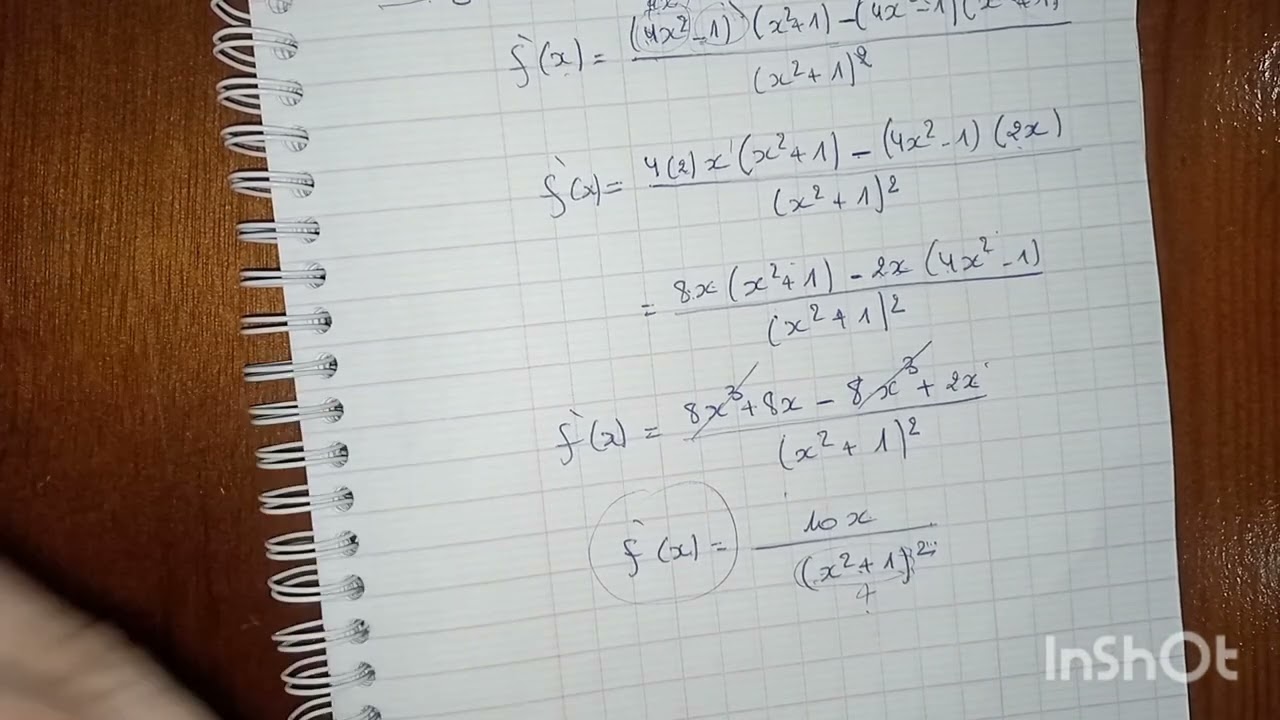 f'(x) = (4x² - 1)' (x² + 1) - (4x² - 1)(x² + 1)' / (x² + 1)²
f'(x) = 4(2)x¹(x² + 1) - (4x² - 1)(2x) / (x² + 1)²
= 8x(x² + 1) - 2x(4x² - 1) / (x² + 1)²
f'(x) = 8x³ + 8x - 8x³ + 2x / (x² + 1)²
f'(x) = 10x / (x² + 1)²
+
InShOt